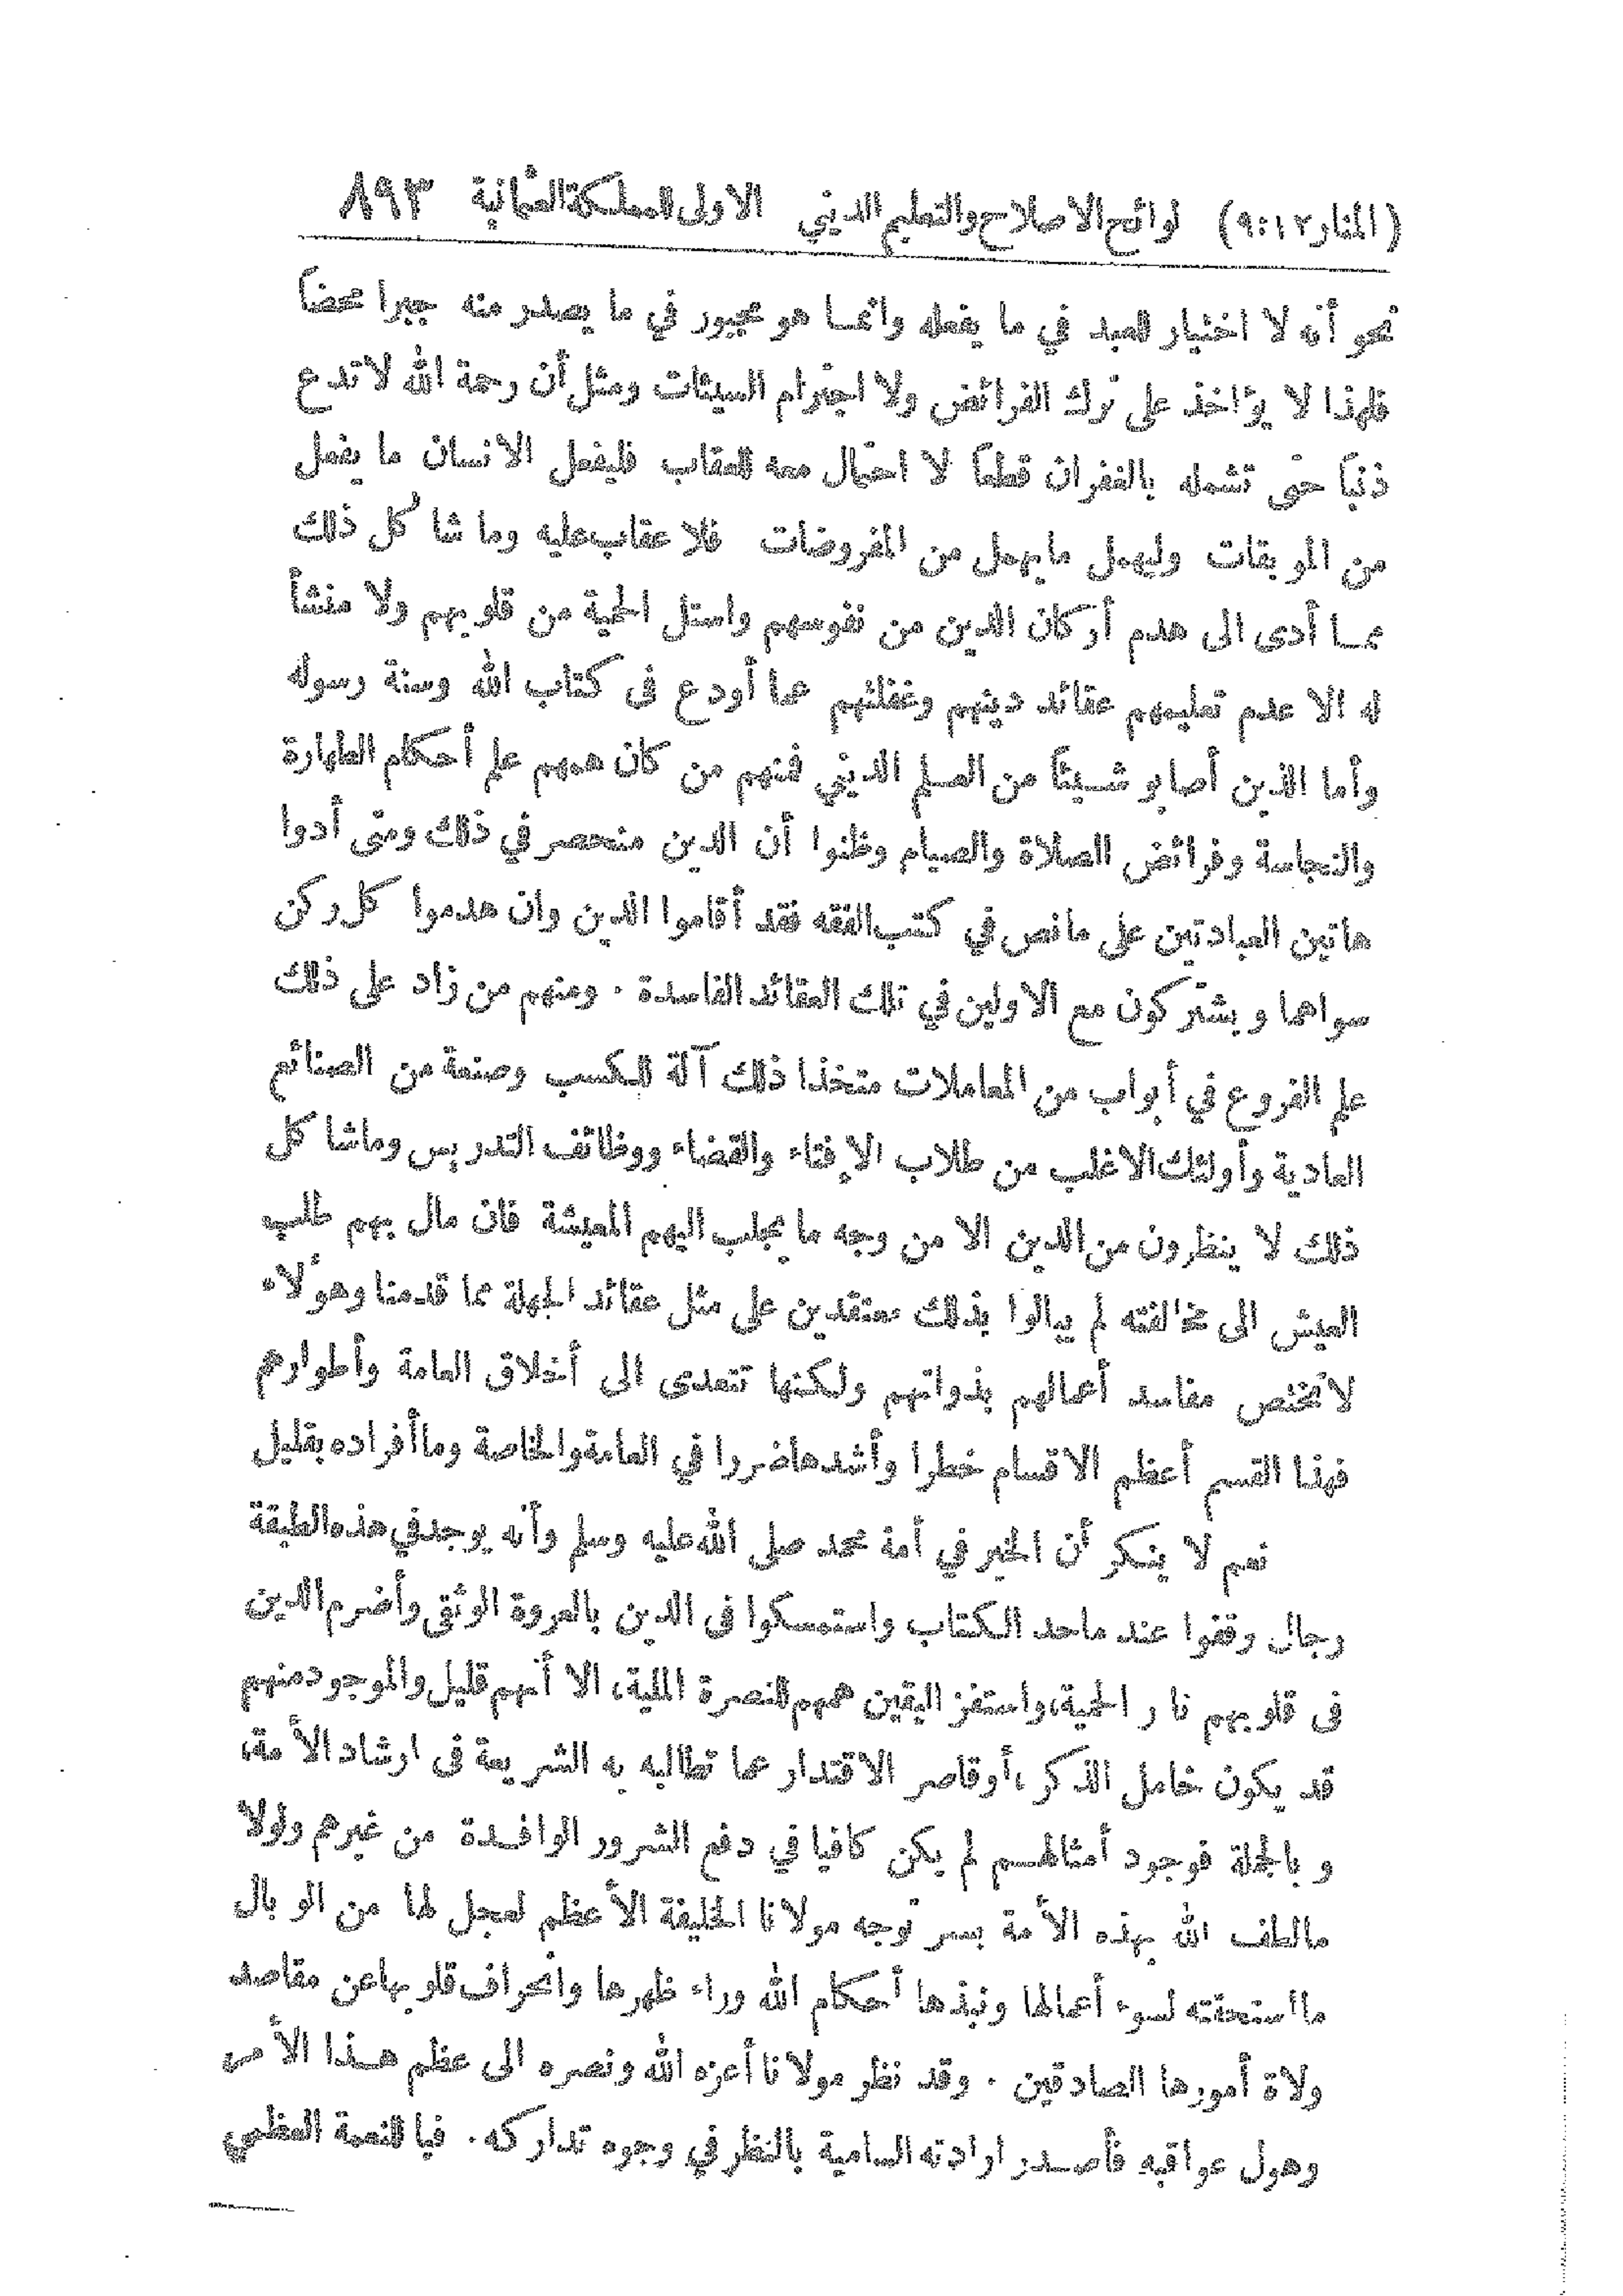 (المنار ١٢:٩) لوائح الاصلاح والتعليم الديني الاولى للمملكة العثمانية ٨٩٣
نحو أنه لا اختيار للعبد في ما يفعله وانما هو مجبور في ما يصدر منه جبرا محضاً
فلهذا لا يؤاخذ على ترك الفرائض ولا اجترام السيئات ومثل أن رحمة الله لا تدع
ذنباً حتى تشمله بالغفران قطعاً لا احتمال معه للعقاب فليفعل الانسان ما يفعل
من الموبقات وليهمل ما يهمل من المفروضات فلا عقاب عليه وما شاكل ذلك
مما أدى الى هدم أركان الدين من نفوسهم واستل الحمية من قلوبهم ولا منشأ
له الا عدم تعليمهم عقائد دينهم وغفلتهم عما أودع فى كتاب الله وسنة رسوله
وأما الذين أصابو شيئاً من العلم الديني فمنهم من كان همهم علم أحكام الطهارة
والنجاسة وفرائض الصلاة والصيام وظنوا أن الدين منحصر في ذلك ومتى أدوا
هاتين العبادتين على ما نص في كتب الفقه فقد أقاموا الدين وان هدموا كل ركن
سواهما ويشتركون مع الاولين في تلك العقائد الفاسدة . ومنهم من زاد على ذلك
علم الفروع في أبواب من المعاملات متخذا ذلك آلة للكسب وصنعة من الصنائع
العادية وأولئك الاغلب من طلاب الإفتاء والقضاء ووظائف التدريس وماشاكل
ذلك لا ينظرون من الدين الا من وجه ما يجلب اليهم المعيشة فان مال بهم طلب
العيش الى مخالفته لم يبالوا بذلك معتقدين على مثل عقائد الجهلة مما قدمنا وهؤلاء
لا تختص مفاسد أعمالهم بذواتهم ولكنها تتعدى الى أخلاق العامة وأطوارهم
فهذا القسم أعظم الاقسام خطرا وأشدها ضررا في العامة والخاصة وما أفراده بقليل
نعم لا ينكر أن الخير في أمة محمد صلى الله عليه وسلم وأنه يوجد في هذه الطبقة
رجال وقفوا عند ماحد الكتاب واستمسكوا فى الدين بالعروة الوثقى وأضرم الدين
فى قلوبهم نار الحمية، واستفز اليقين هممهم للنصرة الملية، الا أنهم قليل والموجود منهم
قد يكون خامل الذكر، أو قاصر الاقتدار عما تطالبه به الشريعة فى ارشاد الأمة،
وبالجملة فوجود أمثالهم لم يكن كافيا في دفع الشرور الوافدة من غيرهم ولولا
مالطف الله بهذه الأمة بسر توجه مولانا الخليفة الأعظم لعجل لها من الوبال
ما استحقته لسوء أعمالها ونبذها أحكام الله وراء ظهرها وانحراف قلوبها عن مقاصد
ولاة أمورها الصادقين . وقد نظر مولانا أعزه الله ونصره الى عظم هذا الأمر
وهول عواقبه فأصدر ارادته السامية بالنظر في وجوه تداركه . فيا للنعمة العظمى